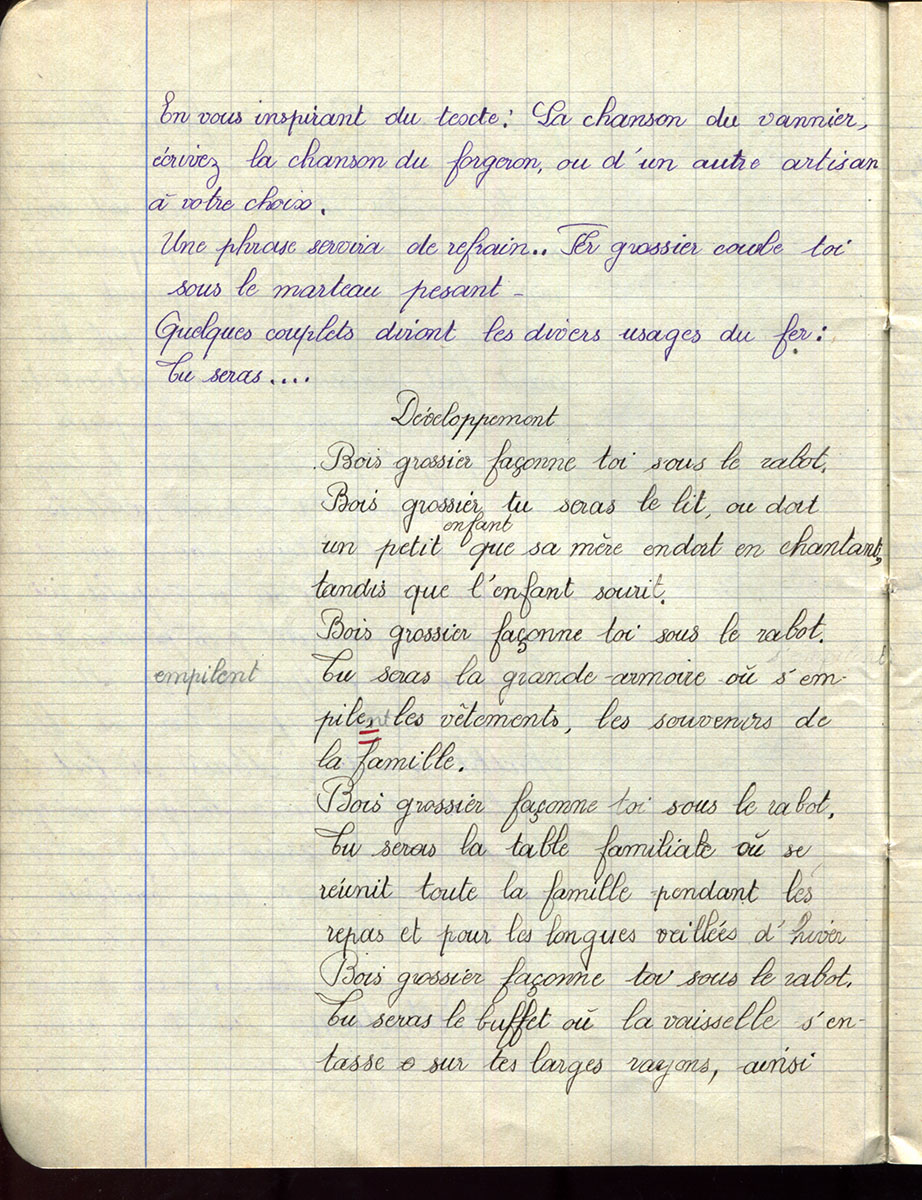 En vous inspirant du texte : La chanson du vannier,
écrivez la chanson du forgeron, ou d'un autre artisan
à votre choix.
Une phrase servira de refrain.. Fer grossier courbe toi
sous le marteau pesant -
Quelques couplets diront les divers usages du fer :
Tu seras....
Développement
Bois grossier façonne toi sous le rabot.
Bois grossier tu seras le lit, ou dort
enfant
un petit que sa mère endort en chantant,
tandis que l'enfant sourit.
Bois grossier façonne toi sous le rabot.
empilent Tu seras la grande armoire où s'em-
pilent les vêtements, les souvenirs de
la famille.
Bois grossier façonne toi sous le rabot.
Tu seras la table familiale où se
réunit toute la famille pendant les
repas et pour les longues veillées d'hiver
Bois grossier façonne toi sous le rabot.
Tu seras le buffet où la vaisselle s'en-
tasse sur tes larges rayons, ainsi